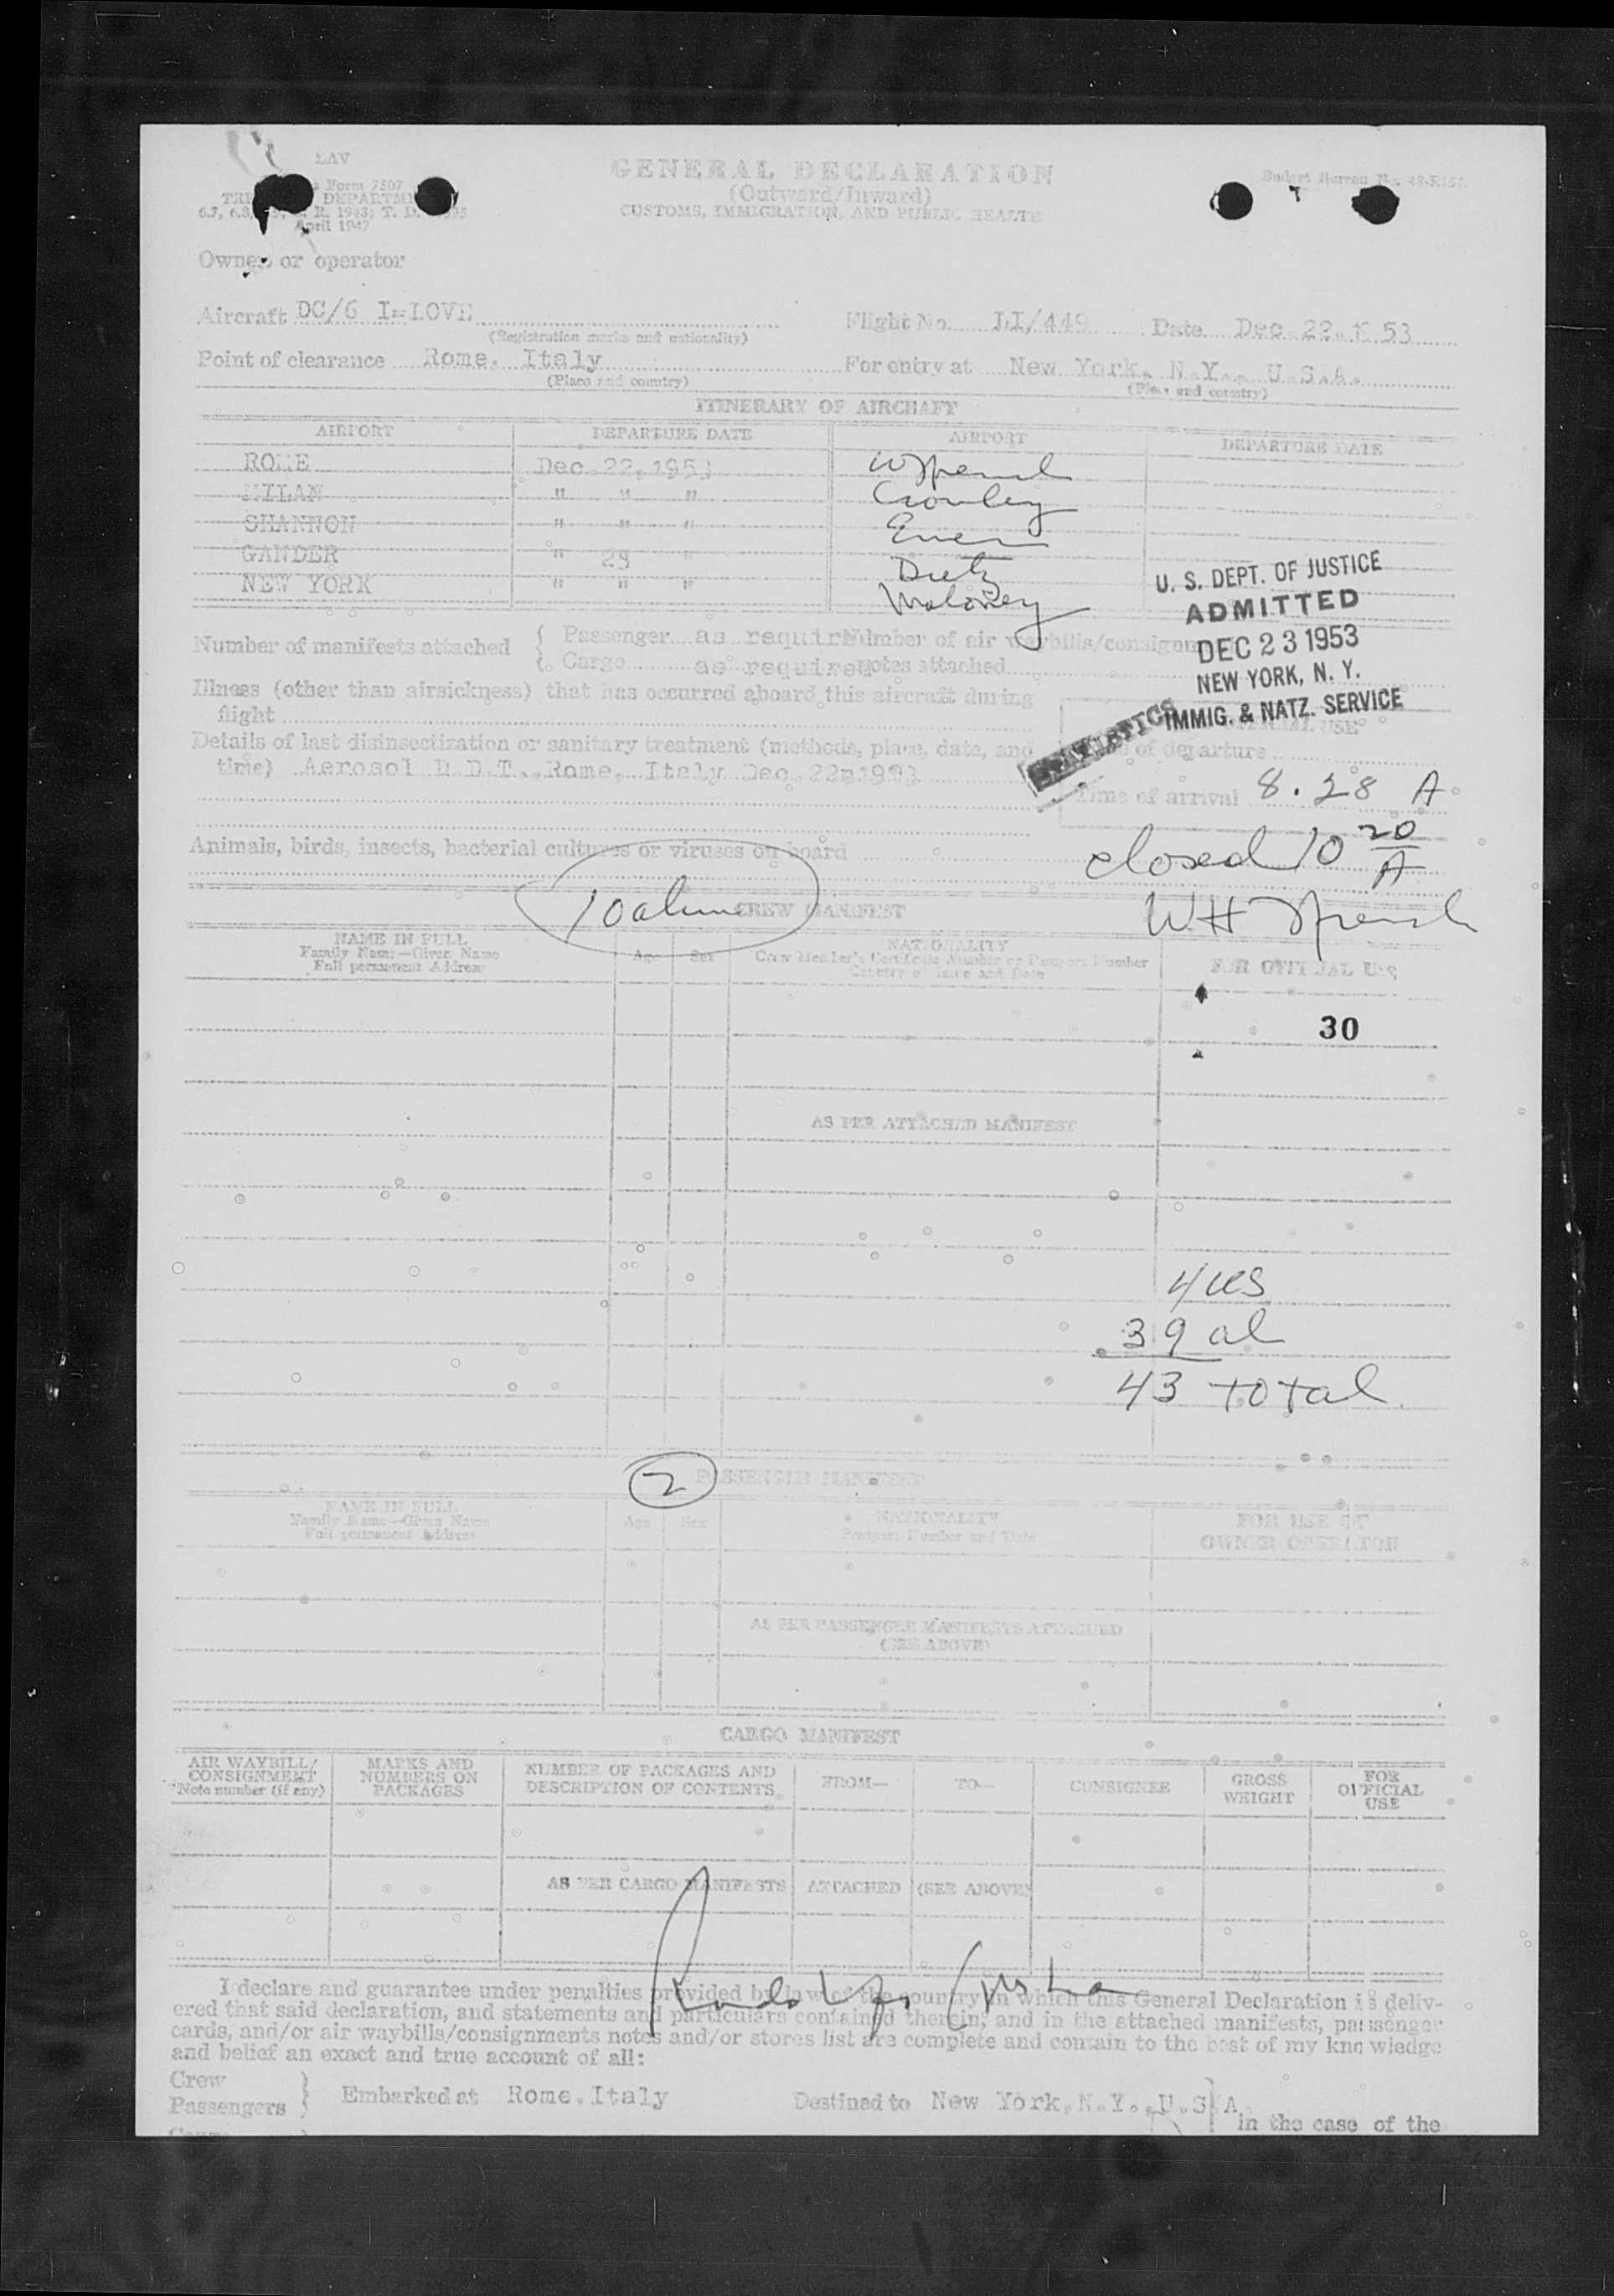 LAV
Form 7507
DEPARTM
April 1947
GENERAL DECLARATION
(Outward/Inward)
CUSTOMS, IMMIGRATION, AND PUBLIC HEALTH
Budget Bureau No.
Owner or operator
Aircraft DC/6 I=LOVE
(Registration marks and nationality)
Flight No. LI/449 Date Dec. 22. 53
Point of clearance Rome. Italy
(Place and country)
For entry at New York. N.Y.. U.S.A.
(Place and country)
ITINERARY OF AIRCRAFT
AIRPORT DEPARTURE DATE AIRPORT DEPARTURE DATE
ROME Dec.22.1953
MILAN " " " Crowley
SHANNON " " "
GANDER " 23 " Dietz
NEW YORK " " " Maloney
U. S. DEPT. OF JUSTICE
ADMITTED
DEC 23 1953
NEW YORK, N. Y.
IMMIG. & NATZ. SERVICE
STATISTICS
Number of manifests attached { Passenger as required Number of air waybills/consignment
Cargo as required notes attached
Illness (other than airsickness) that has occurred aboard this aircraft during
flight
Details of last disinsectization or sanitary treatment (methods, place, date, and
time) Aerosol D.D.T..Rome, Italy Dec. 22 1953
OFFICIAL USE
of departure
Time of arrival 8.28 A
Animals, birds, insects, bacterial cultures or viruses on board
closed 10 20 A
10 aliens
CREW MANIFEST
W H
NAME IN FULL
Family Name—Given Name
Full permanent Address
Age Sex
NATIONALITY
Crew Member's Certificate Number or Passport Number
Country of issue and Date
FOR OFFICIAL USE
30
AS PER ATTACHED MANIFEST
4 US
39 al
43 total
2
PASSENGER MANIFEST
NAME IN FULL
Family Name—Given Name
Full permanent Address
Age Sex
NATIONALITY
Passport Number and Date
FOR USE OF
OWNER OPERATOR
AS PER PASSENGER MANIFESTS ATTACHED
(SEE ABOVE)
CARGO MANIFEST
AIR WAYBILL/
CONSIGNMENT
Note number (if any)
MARKS AND
NUMBERS ON
PACKAGES
NUMBER OF PACKAGES AND
DESCRIPTION OF CONTENTS
FROM—
TO—
CONSIGNEE
GROSS
WEIGHT
FOR
OFFICIAL
USE
AS PER CARGO MANIFESTS ATTACHED (SEE ABOVE)
I declare and guarantee under penalties provided by law of the country in which this General Declaration is deliv-
ered that said declaration, and statements and particulars contained therein, and in the attached manifests, passenger
cards, and/or air waybills/consignments notes and/or stores list are complete and contain to the best of my knowledge
and belief an exact and true account of all:
Crew
Passengers } Embarked at Rome.Italy Destined to New York,N.Y.,U.S.A.
in the case of the